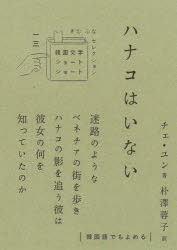 ハナコはいない
チェ・ユン 著
朴澤蓉子 訳
きむふなセレクション
韓国文学
ショート
ショート
一三
迷路のような
ベネチアの街を歩き
ハナコの影を追う彼は
彼女の何を
知っていたのか
韓国語でもよめる